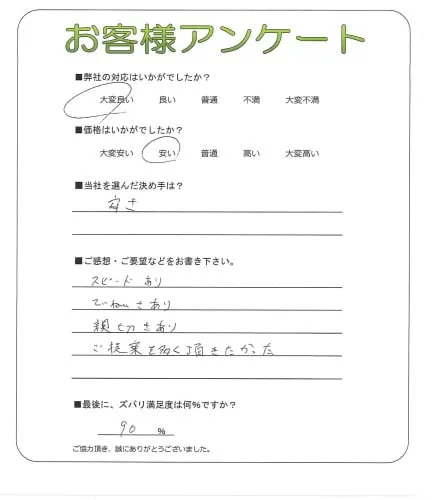 お客様アンケート
■弊社の対応はいかがでしたか？
大変良い 良い 普通 不満 大変不満
■価格はいかがでしたか？
大変安い 安い 普通 高い 大変高い
■当社を選んだ決め手は？
安さ
■ご感想・ご要望などをお書き下さい。
スピードあり
ていねいさあり
親切さあり
ご提案を多く頂きたかった
■最後に、ズバリ満足度は何%ですか？
90 %
ご協力頂き、誠にありがとうございました。